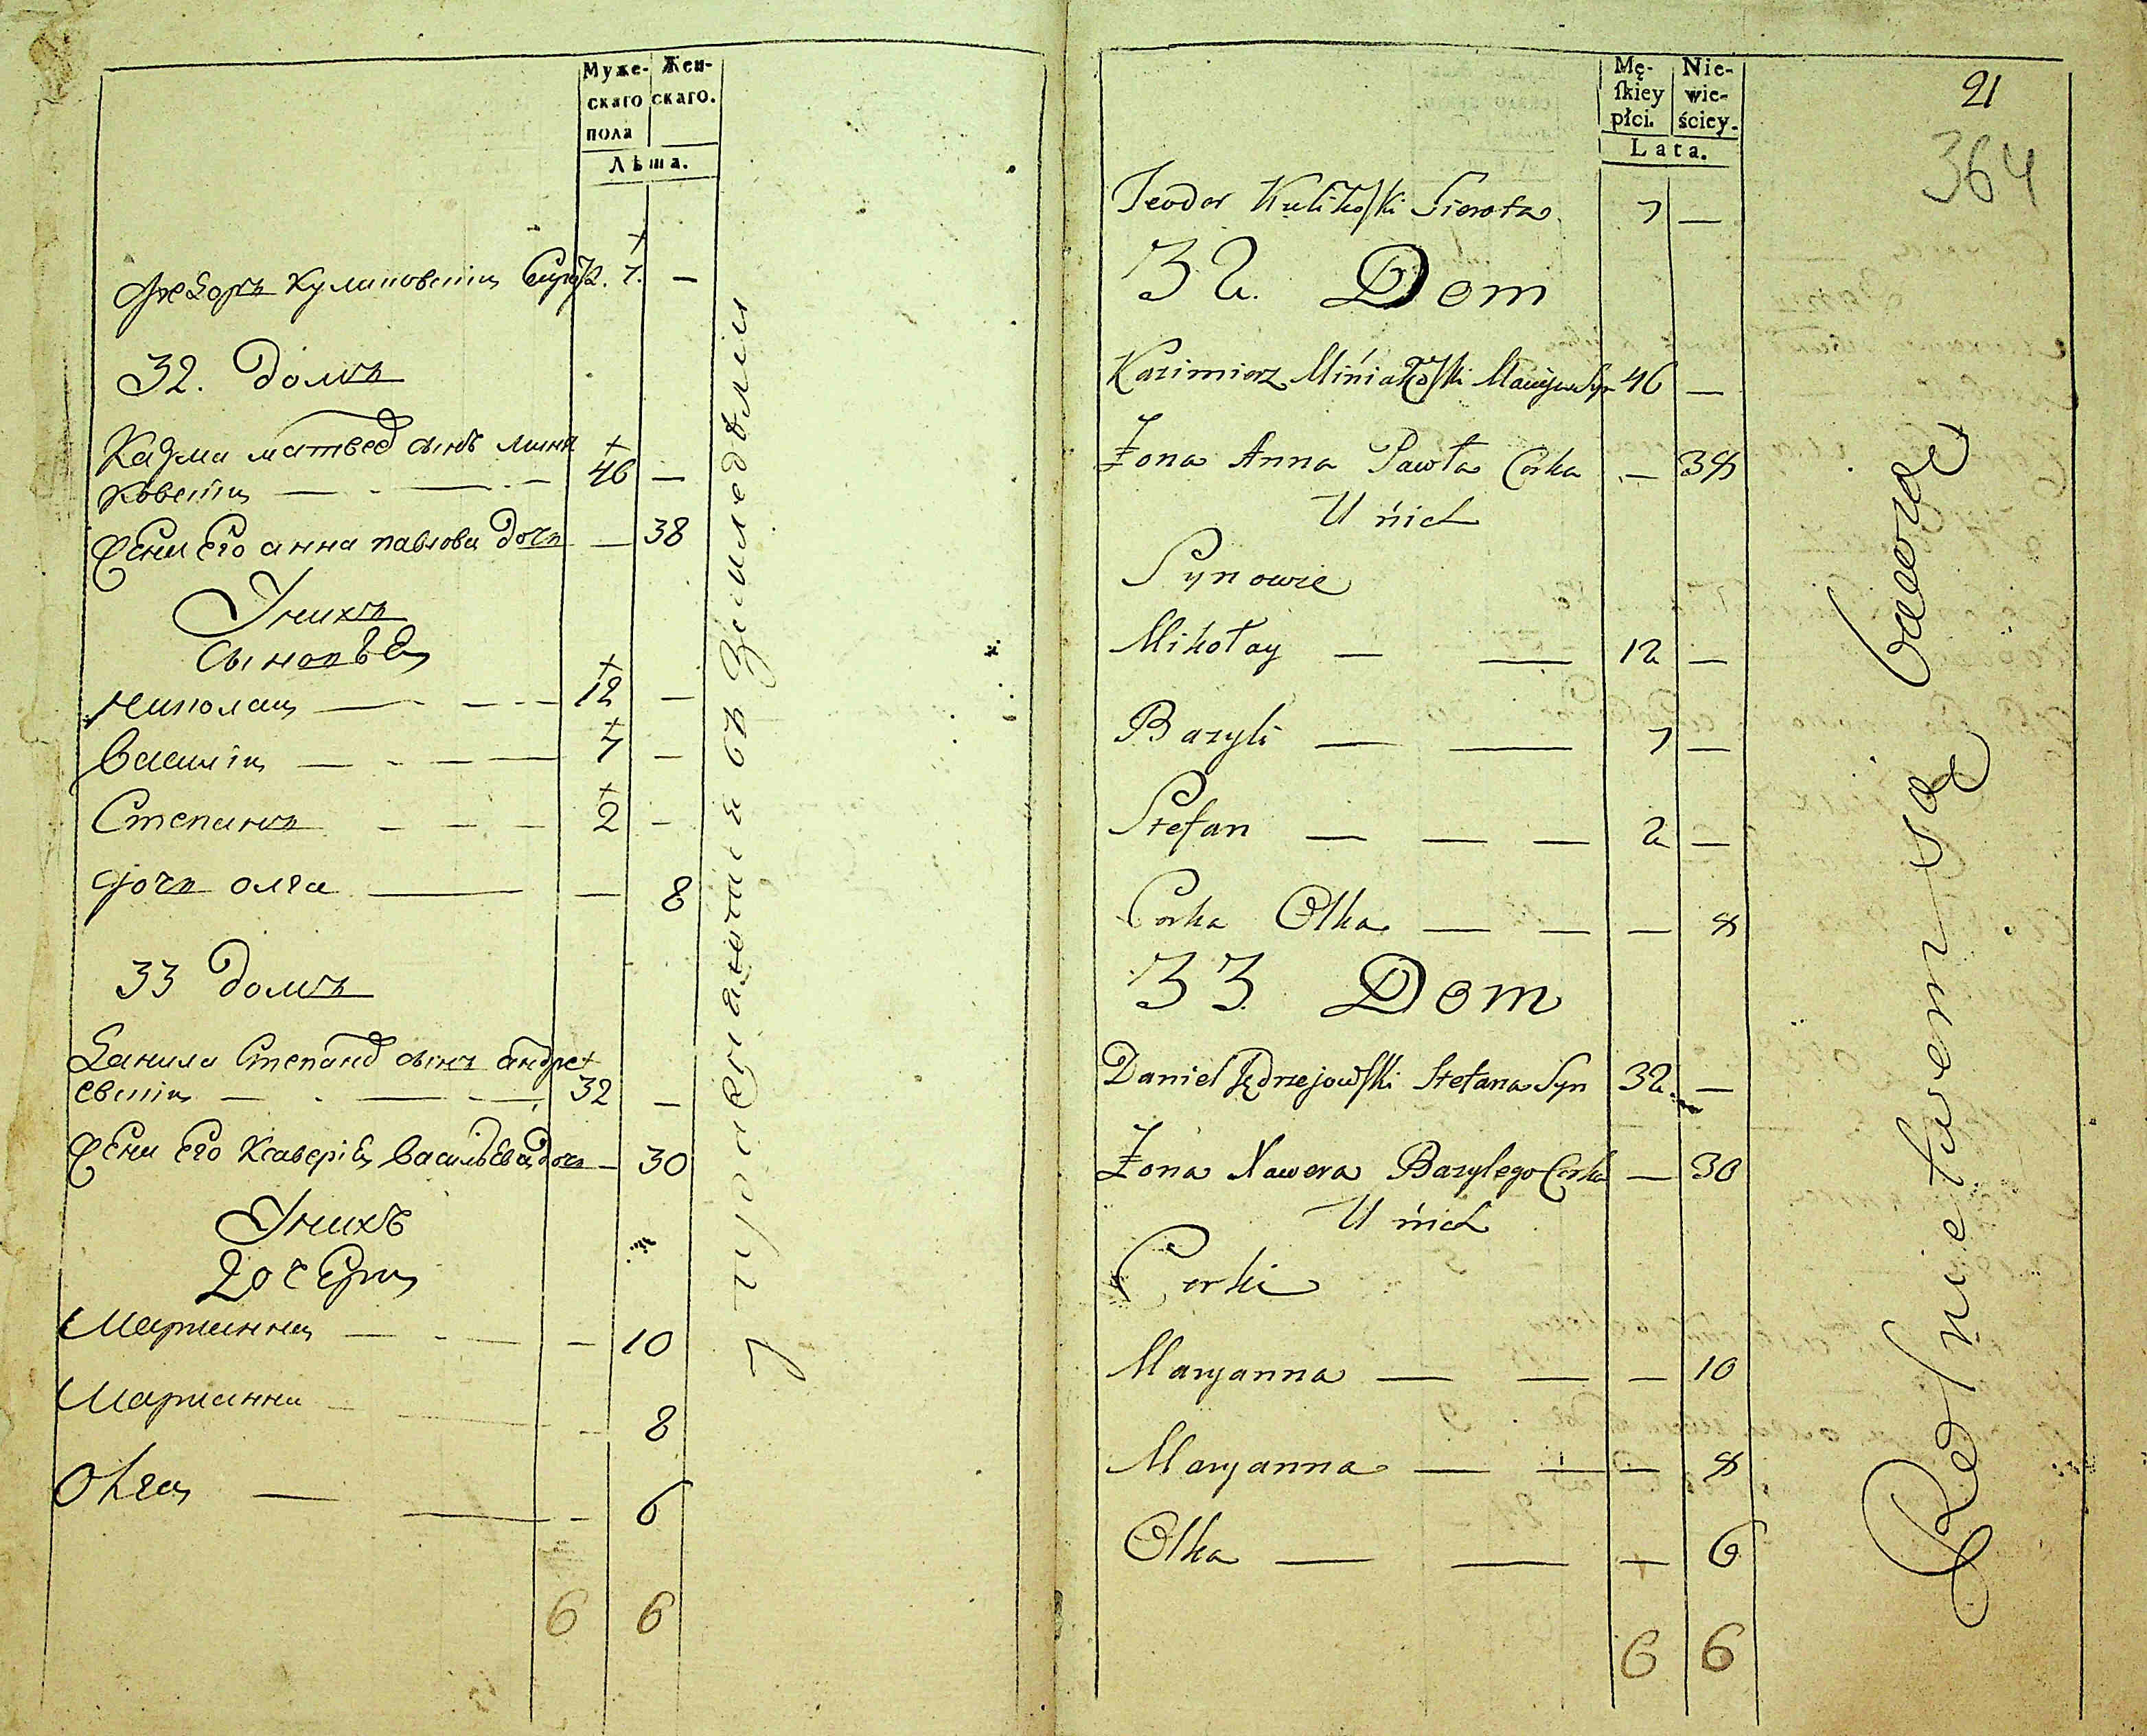 Муже-
скаго
пола
Жен-
скаго.
Лѣта.
Федоръ Куликовскій Сирота. 7. —
32. Домъ
Казми матвея сынъ Миня
ковскій — 46 —
Жена Его анна павлова дочь — 38
У нихъ
Сыновья
николай — 12 —
Василій — 7 —
Степанъ — 2 —
дочь олга — — 8
33 Домъ
Данила Степана сынъ андре
евскій — 32 —
Жена Его Ксаверія Васильева дочь — 30
У нихъ
дочери
Марианна — — 10
Марианна — — 8
Олга — — 6
6 6
упражняются въ Земледѣліи
Mę-
ſkiey
płci.
Nie-
wie-
ściey.
Lata.
21
364
Teodor Kulikoſki Sierota 7 —
32. Dom
Kazimierz Miniakoſki Macieja Syn 46 —
Żona Anna Pawła Corka — 38
U nich
Synowie
Mikołay — — 12 —
Bazyli — — 7 —
Stefan — — — 2 —
Corka Olka — — — 8
33 Dom
Daniel Jędrzejowſki Stefana Syn 32 —
Żona Xawera Bazylego Corka — 30
U nich
Corki
Maryanna — — — 10
Maryanna — — — 8
Olka — — — 6
6 6
Rolnictwem się bawią